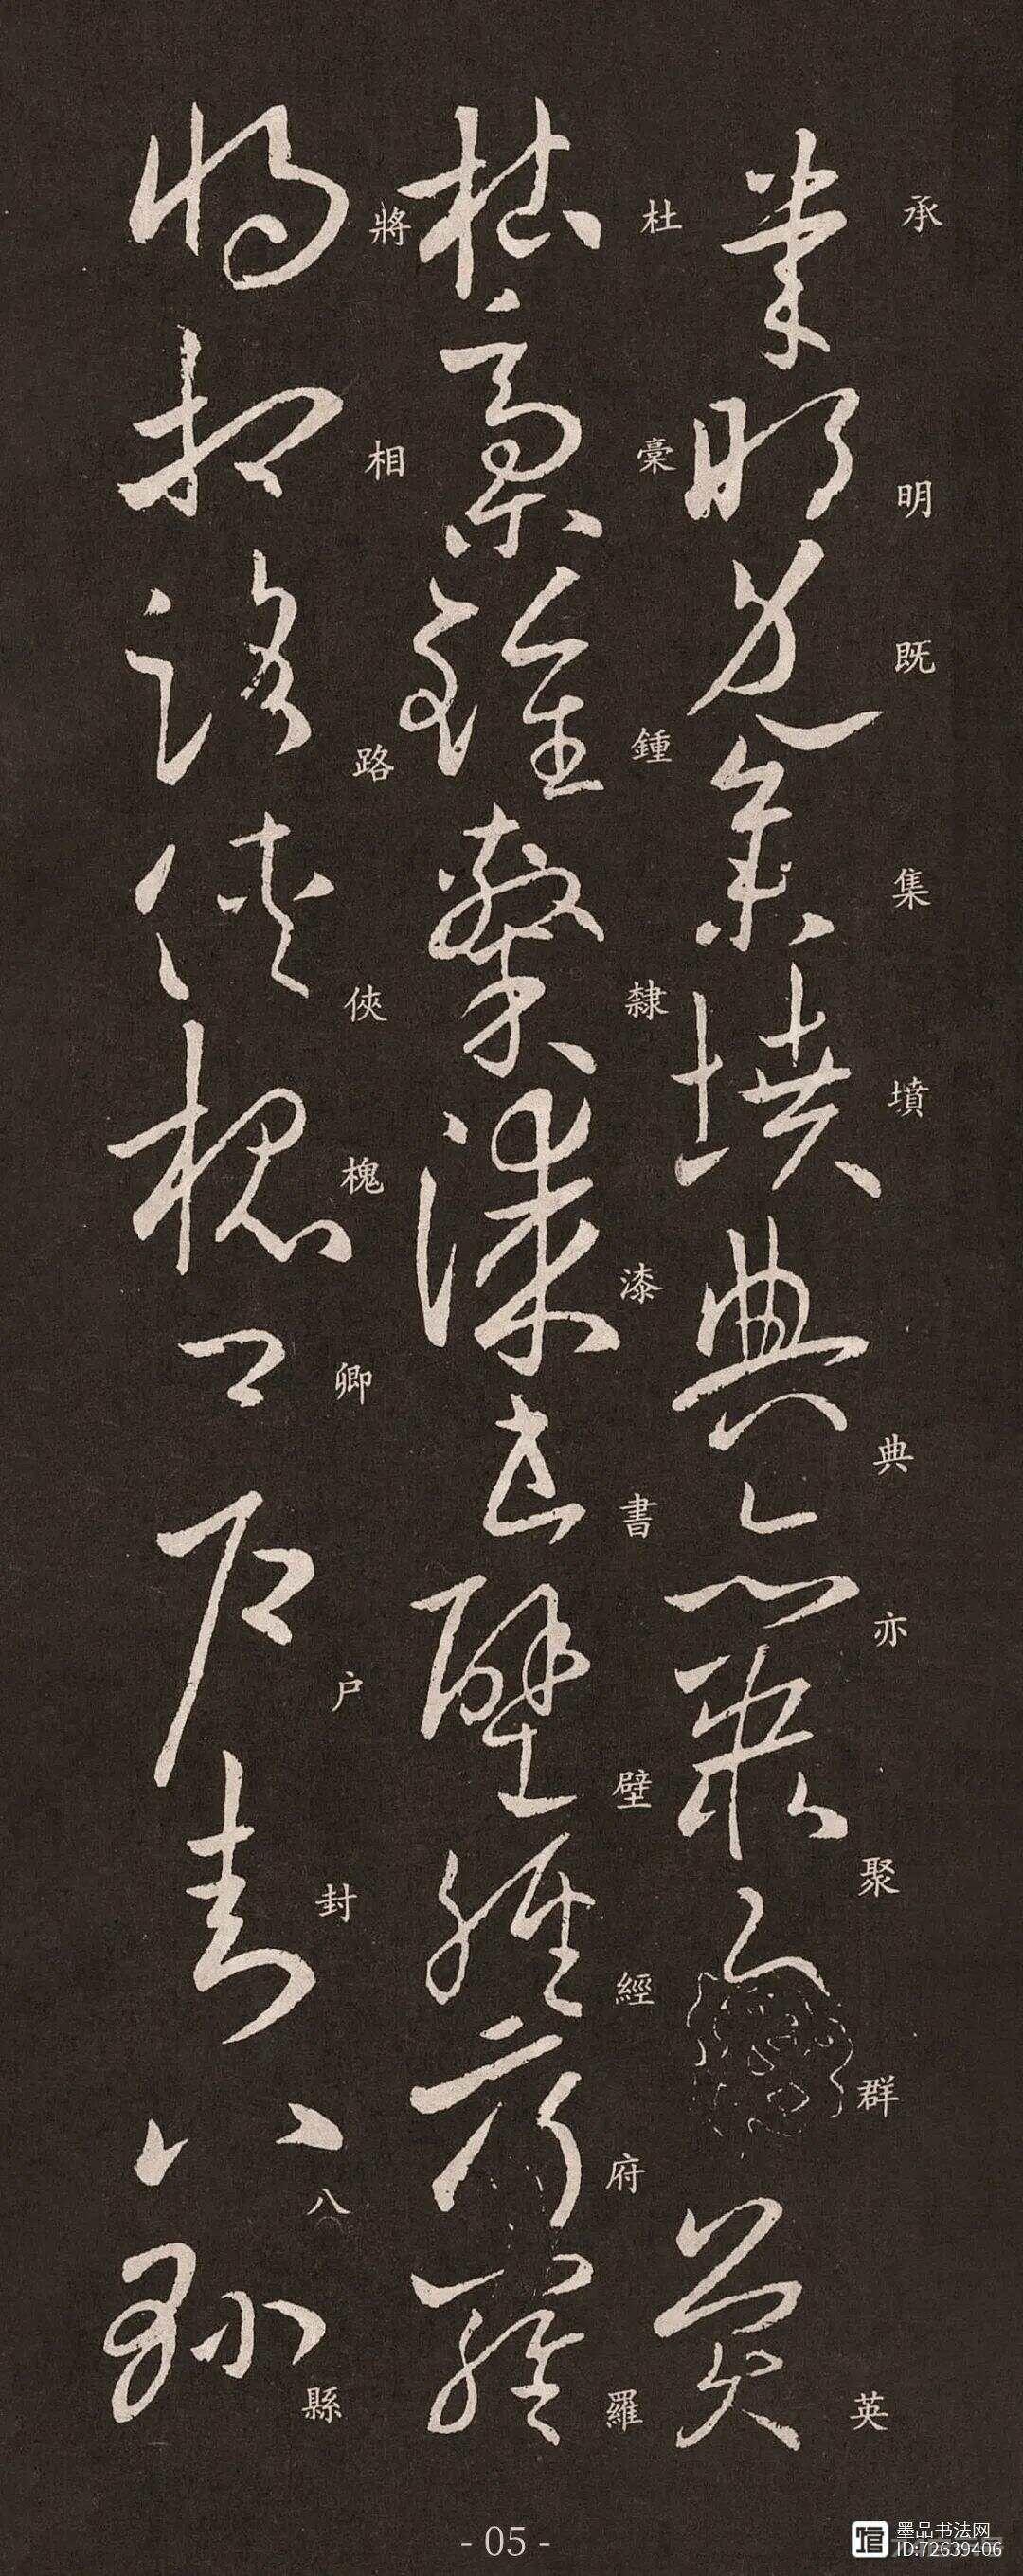 承明既集墳典亦聚群英
杜稾鍾隸漆書壁經府羅
將相路俠槐卿户封八縣
- 05 -
墨品书法网
ID:72639406